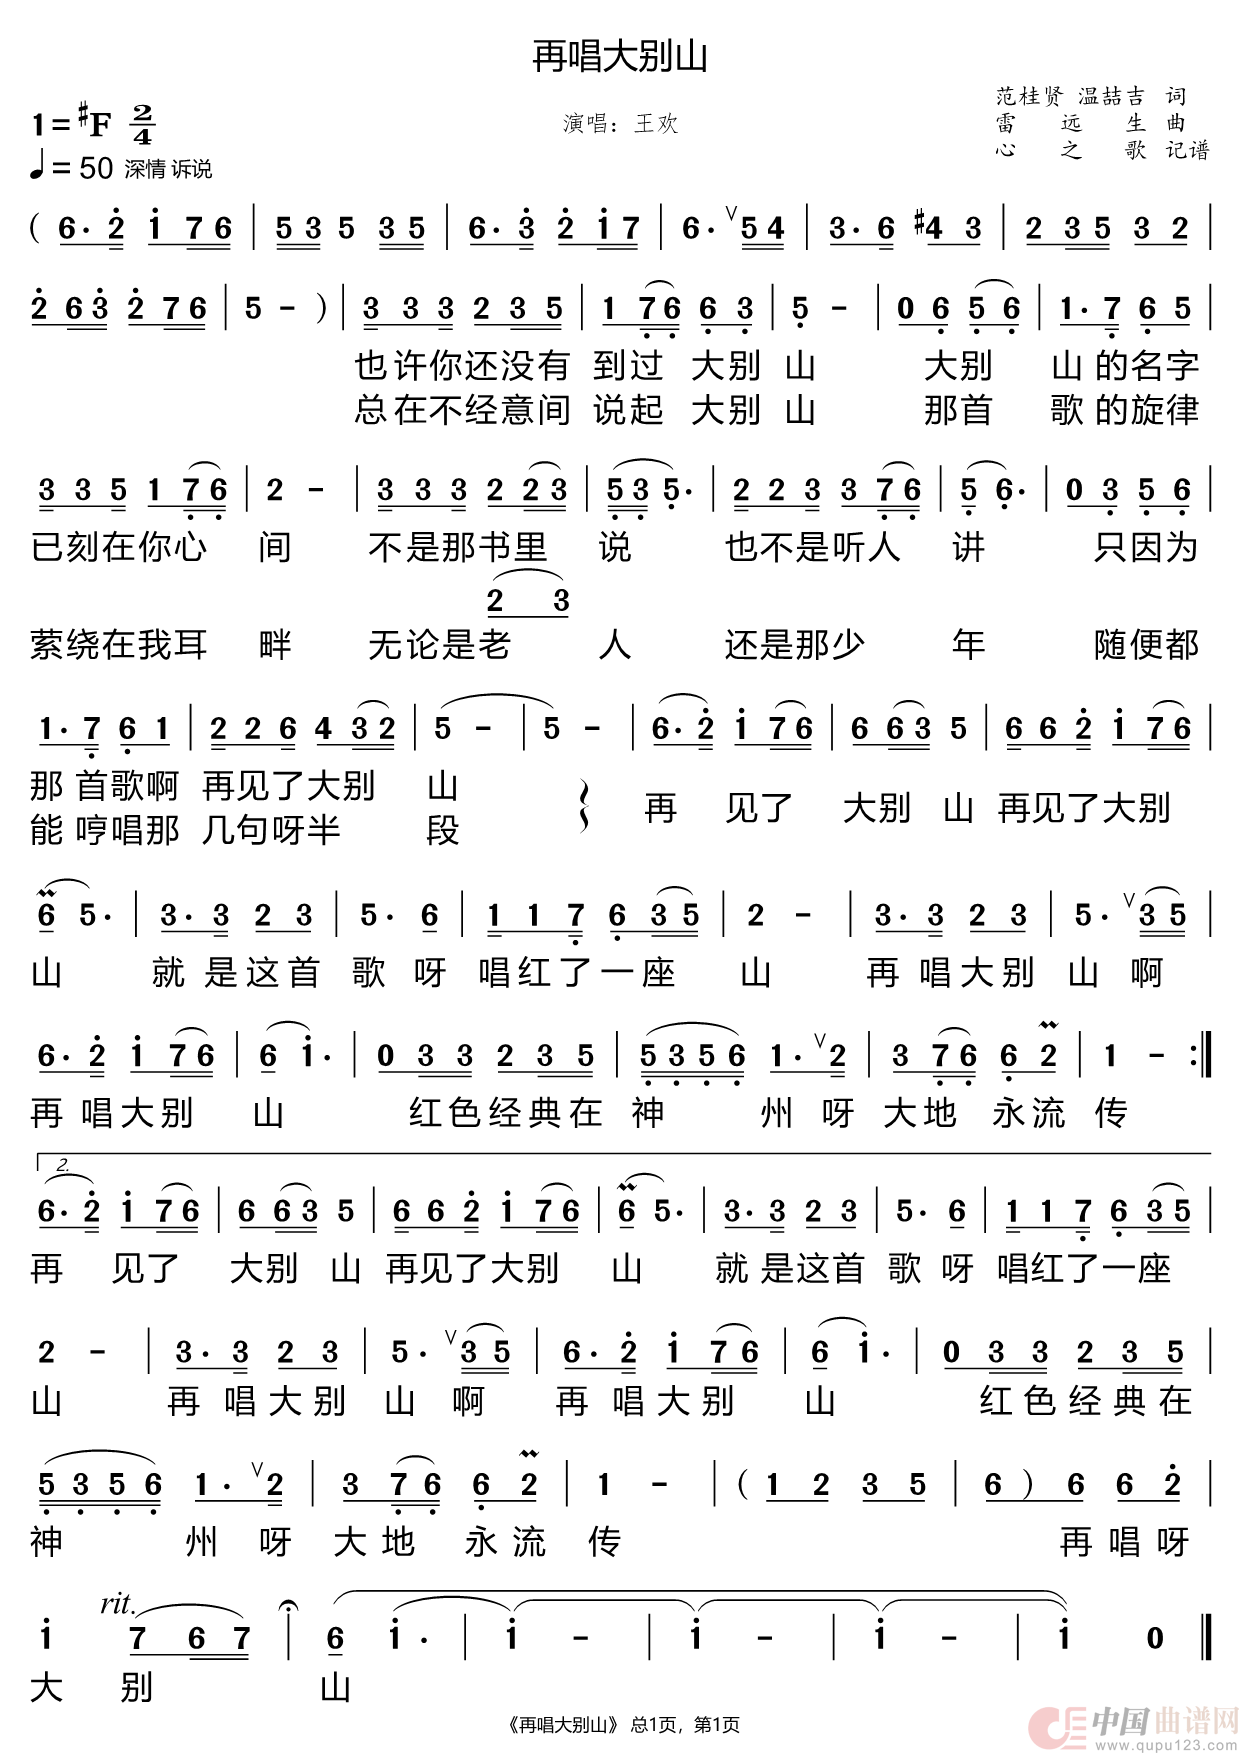 再唱大别山
1=#F 2/4
演唱：王欢
范桂贤 温喆吉 词
雷远生 曲
心之歌 记谱
♩=50 深情 诉说
( 6· 2 1 7 6 | 5 3 5 3 5 | 6· 3 2 1 7 | 6· ∨ 5 4 | 3· 6 #4 3 | 2 3 5 3 2 |
2 6 3 2 7 6 | 5 - ) | 3 3 3 2 3 5 | 1 7 6 6 3 | 5 - | 0 6 5 6 | 1· 7 6 5 |
也许你还没有 到过 大别 山 大别 山的名字
总在不经意间 说起 大别 山 那首 歌的旋律
3 3 5 1 7 6 | 2 - | 3 3 3 2 2 3 | 5 3 5· | 2 2 3 3 7 6 | 5 6· | 0 3 5 6 |
已刻在你心 间 不是那书里 说 也不是听人 讲 只因为
2 3
萦绕在我耳 畔 无论是老 人 还是那少 年 随便都
1· 7 6 1 | 2 2 6 4 3 2 | 5 - | 5 - | 6· 2 1 7 6 | 6 6 3 5 | 6 6 2 1 7 6 |
那首歌啊 再见了大别 山 再 见了 大别 山 再见了大别
能哼唱那 几句呀半 段
6 5· | 3· 3 2 3 | 5· 6 | 1 1 7 6 3 5 | 2 - | 3· 3 2 3 | 5· ∨ 3 5 |
山 就是这首 歌 呀 唱红了一座 山 再唱大别 山 啊
6· 2 1 7 6 | 6 1· | 0 3 3 2 3 5 | 5 3 5 6 1· ∨ 2 | 3 7 6 6 2 | 1 - :|
再唱大别 山 红色经典在 神 州 呀 大地 永流 传
2.
6· 2 1 7 6 | 6 6 3 5 | 6 6 2 1 7 6 | 6 5· | 3· 3 2 3 | 5· 6 | 1 1 7 6 3 5 |
再 见了 大别 山 再见了大别 山 就是这首 歌 呀 唱红了一座
2 - | 3· 3 2 3 | 5· ∨ 3 5 | 6· 2 1 7 6 | 6 1· | 0 3 3 2 3 5 |
山 再唱大别 山 啊 再唱大别 山 红色经典在
5 3 5 6 1· ∨ 2 | 3 7 6 6 2 | 1 - | ( 1 2 3 5 | 6 ) 6 6 2 |
神 州 呀 大地 永流 传 再唱呀
rit.
1 7 6 7 | 6 1· | 1 - | 1 - | 1 - | 1 0 ‖
大 别 山
《再唱大别山》 总1页，第1页
中国曲谱网
www.qupu123.com